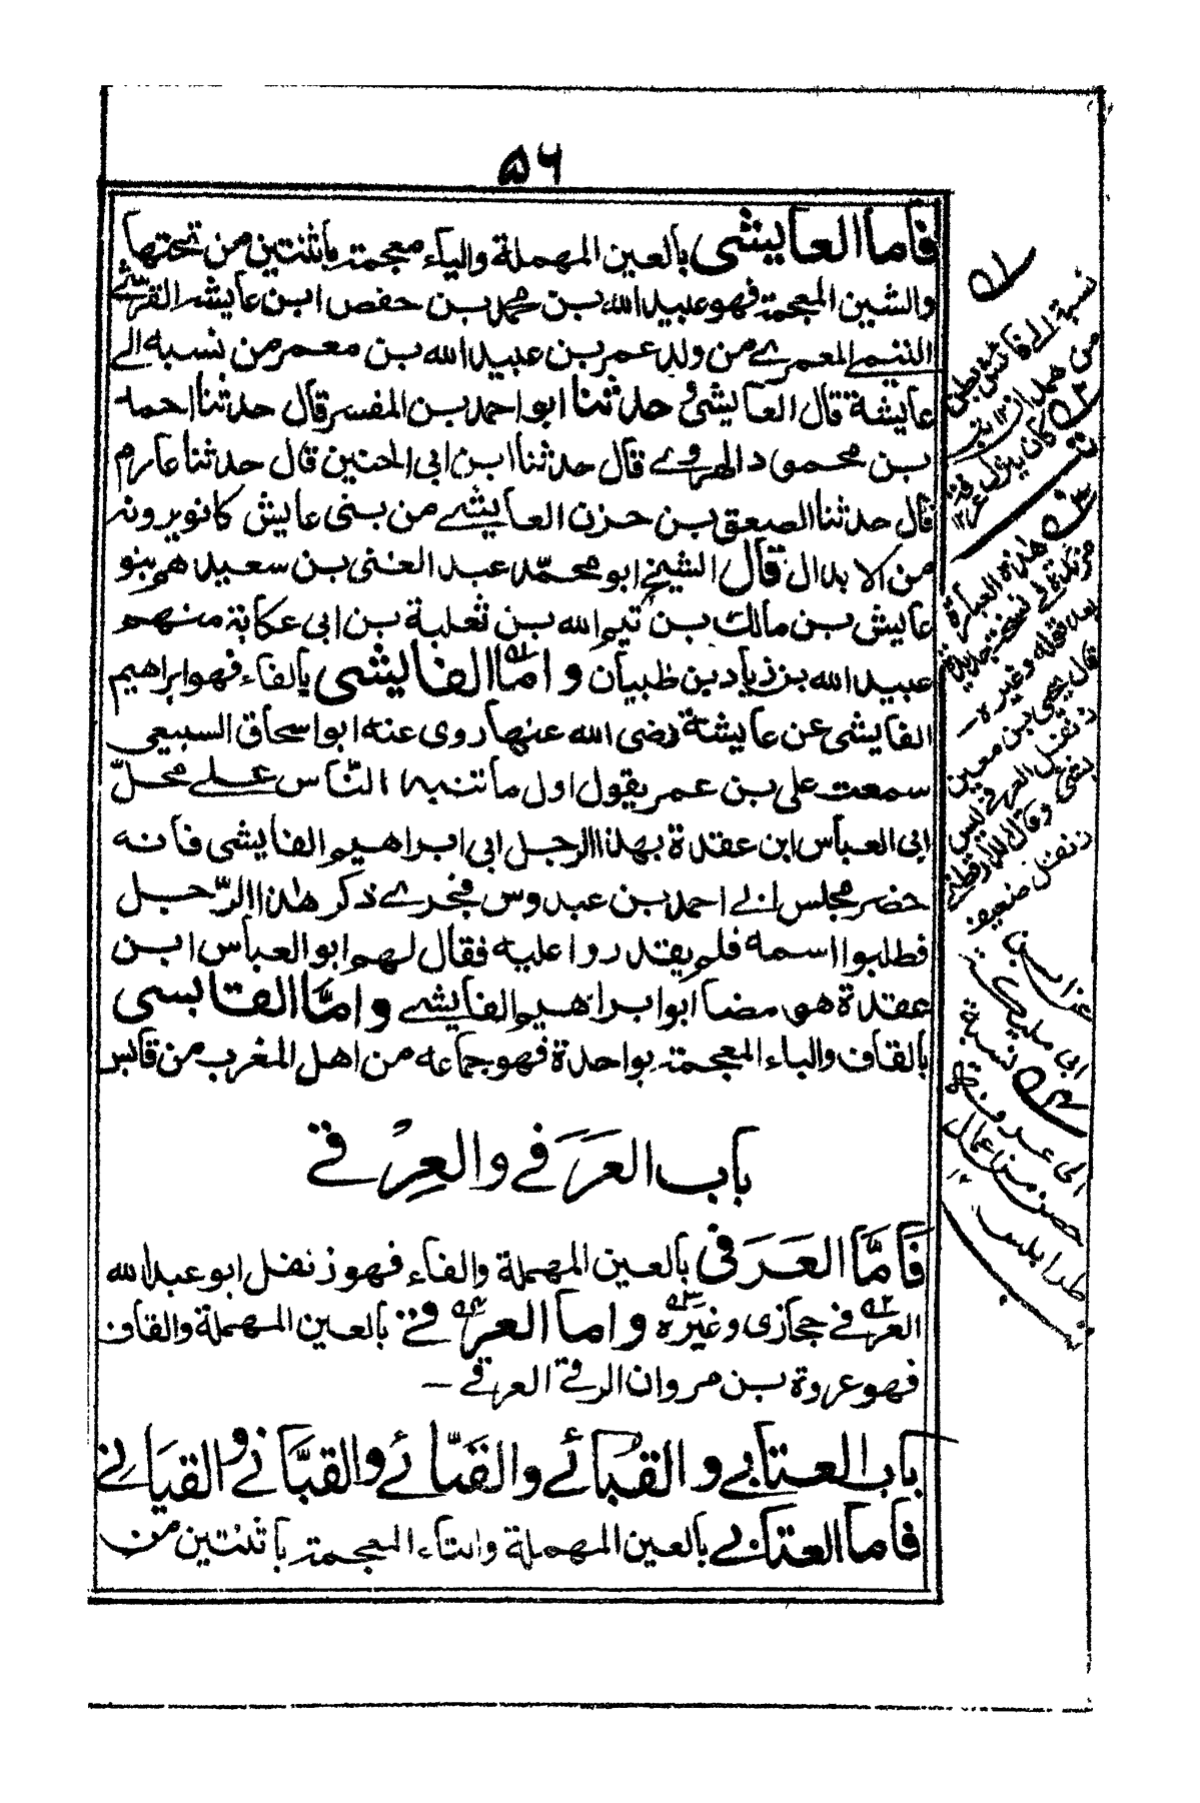 ۵۶
فاما العايشى بالعين المهملة والياء معجمة باثنتين من تحتها
والشين المعجمة فهو عبيد الله بن محمد بن حفص ابن عايشه القرشے
التيمے المعمرے من ولد عمر بن عبيد الله بن معمر من نسبه الے
عايشة قال العايشى و حدثنا ابو احمد بن المفسر قال حدثنا احمد
بن محمود الهروے قال حدثنا ابن ابى الحنين قال حدثنا عارم
قال حدثنا الصعق بن حزن العايشے من بنى عايش كانو يرونه
من الابدال قال الشيخ ابو محمد عبد الغنى بن سعيد هم بنو
عايش بن مالك بن تيم الله بن ثعلبة بن ابى عكابة منهم
عبيد الله بن زياد بن ظبيان و اما الفايشى بالفاء فهو ابراهيم
الفايشى عن عايشة رضى الله عنها روى عنه ابو اسحاق السبيعى
سمعت على بن عمر يقول اول ما تنبه الناس علے محل
ابى العباس ابن عقدة بهذا الرجل ابى ابراهيم الفايشى فانه
حضر مجلس احمد بن عبدوس فجرے ذكر هذا الرّجل
فطلبوا اسمه فلم يقدروا عليه فقال لهم ابو العباس ابن
عقدة هو مضا ابو ابراهيم الفايشے و امّا القابسى
بالقاف والباء المعجمة بواحدة فهو جماعه من اهل المغرب من قابس
باب العَرَفے والعِرْقے
فَامَّا العَرَفى بالعين المهملة والفاء فهو زنفل ابو عبد الله
العرفے حجازى وغيره و اما العرقے بالعين المهملة والقاف
فهو عروة بن مروان الرقے العرقے –
باب العتابے و القبائے والقتائے والقبَّانے و القيانے
فاما العتابے بالعين المهملة والتاء المعجمة باثنتين من
نسبة الے فائش بطن
من همدان
كان ينزل عرفة
هذه العبارة
مزيدة فے نسخة جديدة
بعد قوله وغيره –
قال يحيى بن معين
زنفل العرفے ليس
بشئ وقال الدارقطنے
زنفل ضعيف
عن ابن
ابى مليكة
نسبة
الى عرقة
حصن من اعمال
طرابلس